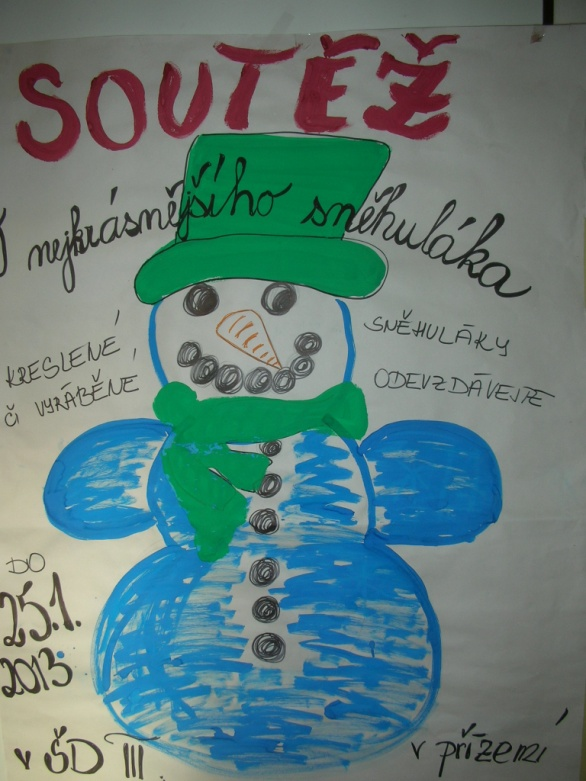 SOUTĚŽ
nejkrásnějšího sněhuláka
KRESLENÉ
ČI VYRÁBĚNÉ
SNĚHULÁKY
ODEVZDÁVEJTE
DO
25.1.
2013
v ŠD III
v přízemí